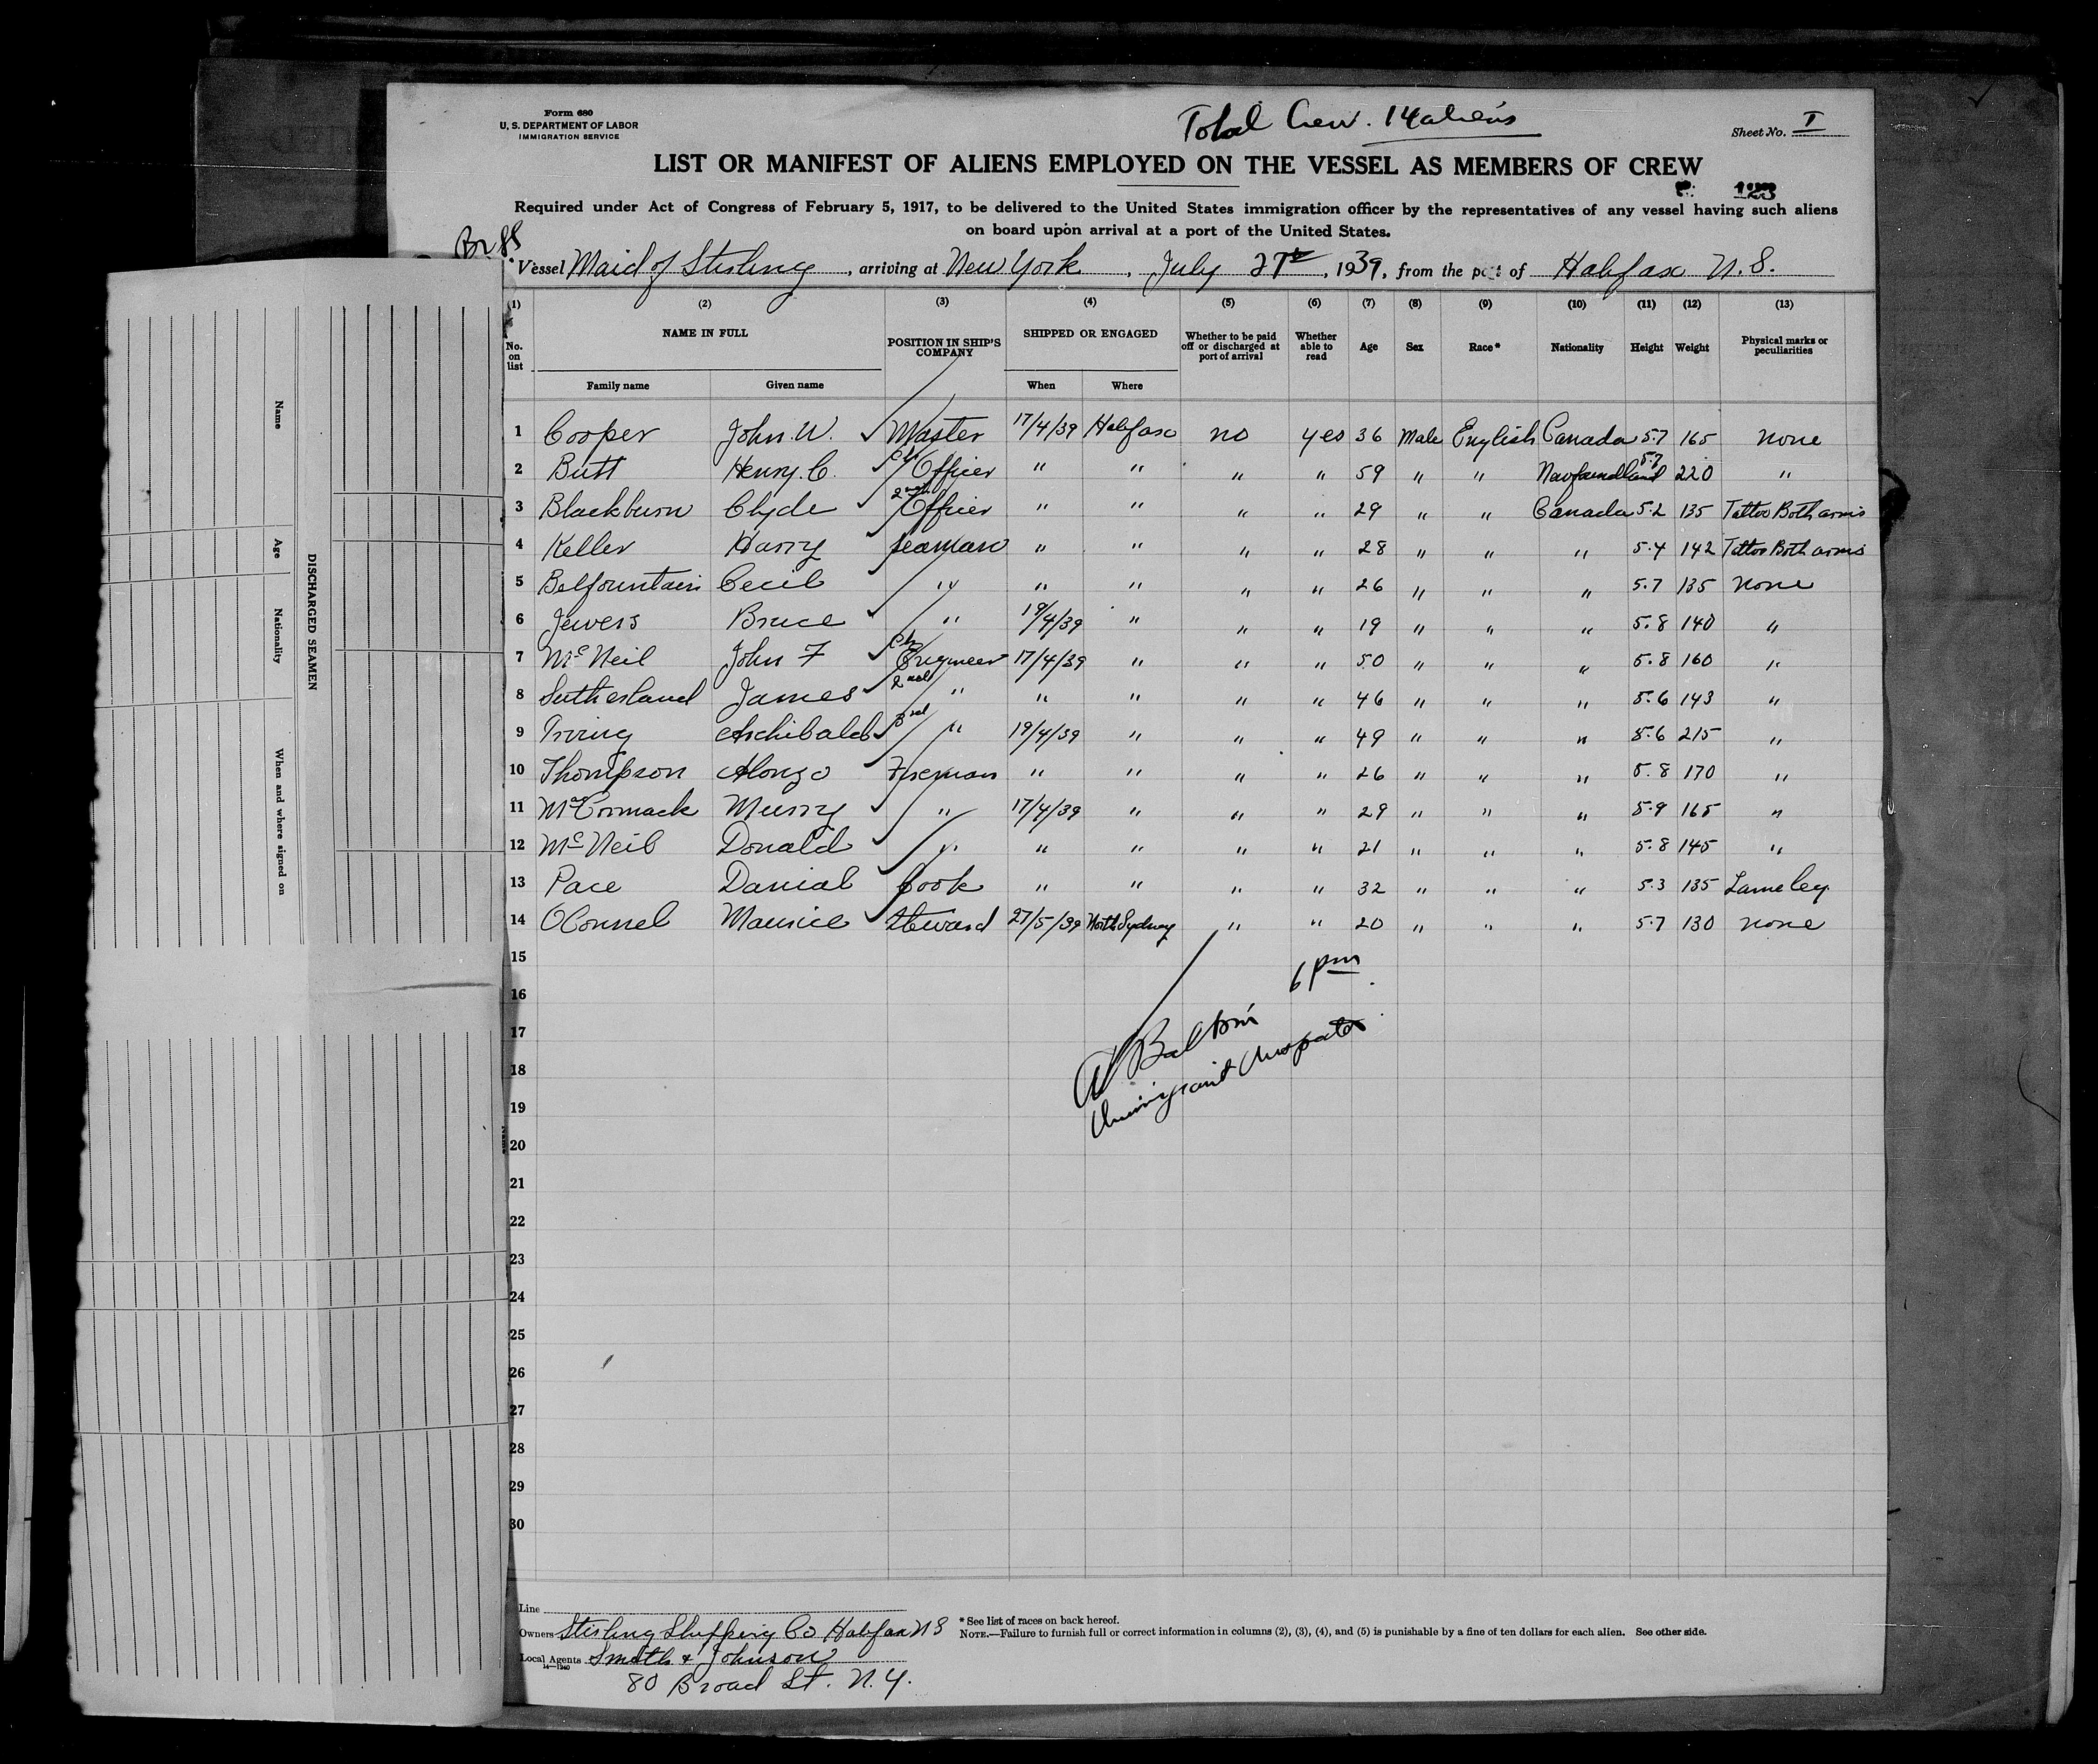 Form 680
U. S. DEPARTMENT OF LABOR
IMMIGRATION SERVICE
Total Crew. 14 aliens
Sheet No. I
LIST OR MANIFEST OF ALIENS EMPLOYED ON THE VESSEL AS MEMBERS OF CREW
Required under Act of Congress of February 5, 1917, to be delivered to the United States immigration officer by the representatives of any vessel having such aliens
on board upon arrival at a port of the United States.
Vessel Maid of Stirling, arriving at New York, July 27th, 1939, from the port of Halifax N.S.
(1) (2) (3) (4) (5) (6) (7) (8) (9) (10) (11) (12) (13)
No. on list NAME IN FULL POSITION IN SHIP'S COMPANY SHIPPED OR ENGAGED Whether to be paid off or discharged at port of arrival Whether able to read Age Sex Race* Nationality Height Weight Physical marks or peculiarities
Family name Given name When Where
1 Cooper John. W. Master 17/4/39 Halifax no yes 36 Male English Canada 5.7 165 none
2 Butt Henry. C. Ch Officer " " " " 59 " " Newfoundland 5.7 220 "
3 Blackburn Clyde 2nd Officer " " " " 29 " " Canada 5.2 135 Tattoo Both arms
4 Keller Harry Seaman " " " " 28 " " " 5.4 142 Tattoo Both arms
5 Belfountain Cecil " " " " " 26 " " " 5.7 135 none
6 Jewers Bruce " 19/4/39 " " " 19 " " " 5.8 140 "
7 McNeil John F Ch Engineer 17/4/39 " " " 50 " " " 5.8 160 "
8 Sutherland James 2nd " " " " " 46 " " " 5.6 143 "
9 Irving Archibald 3rd " 19/4/39 " " " 49 " " " 5.6 215 "
10 Thompson Alonzo Fireman " " " " 26 " " " 5.8 170 "
11 MacCormack Murry " 17/4/39 " " " 29 " " " 5.9 165 "
12 McNeil Donald " " " " " 21 " " " 5.8 145 "
13 Pace Danial Cook " " " " 32 " " " 5.3 135 Lame leg.
14 OConnel Maurice Steward 27/5/39 North Sydney " " 20 " " " 5.7 130 none
15
16
17
18
19
20
21
22
23
24
25
26
27
28
29
30
6 pm
Immigrant Inspector
Line
Owners Stirling Shipping Co Halifax N S
Local Agents Smith & Johnson
14—1240
80 Broad St. N.Y.
* See list of races on back hereof.
NOTE.—Failure to furnish full or correct information in columns (2), (3), (4), and (5) is punishable by a fine of ten dollars for each alien. See other side.
DISCHARGED SEAMEN
Name
Age
Nationality
When and where signed on